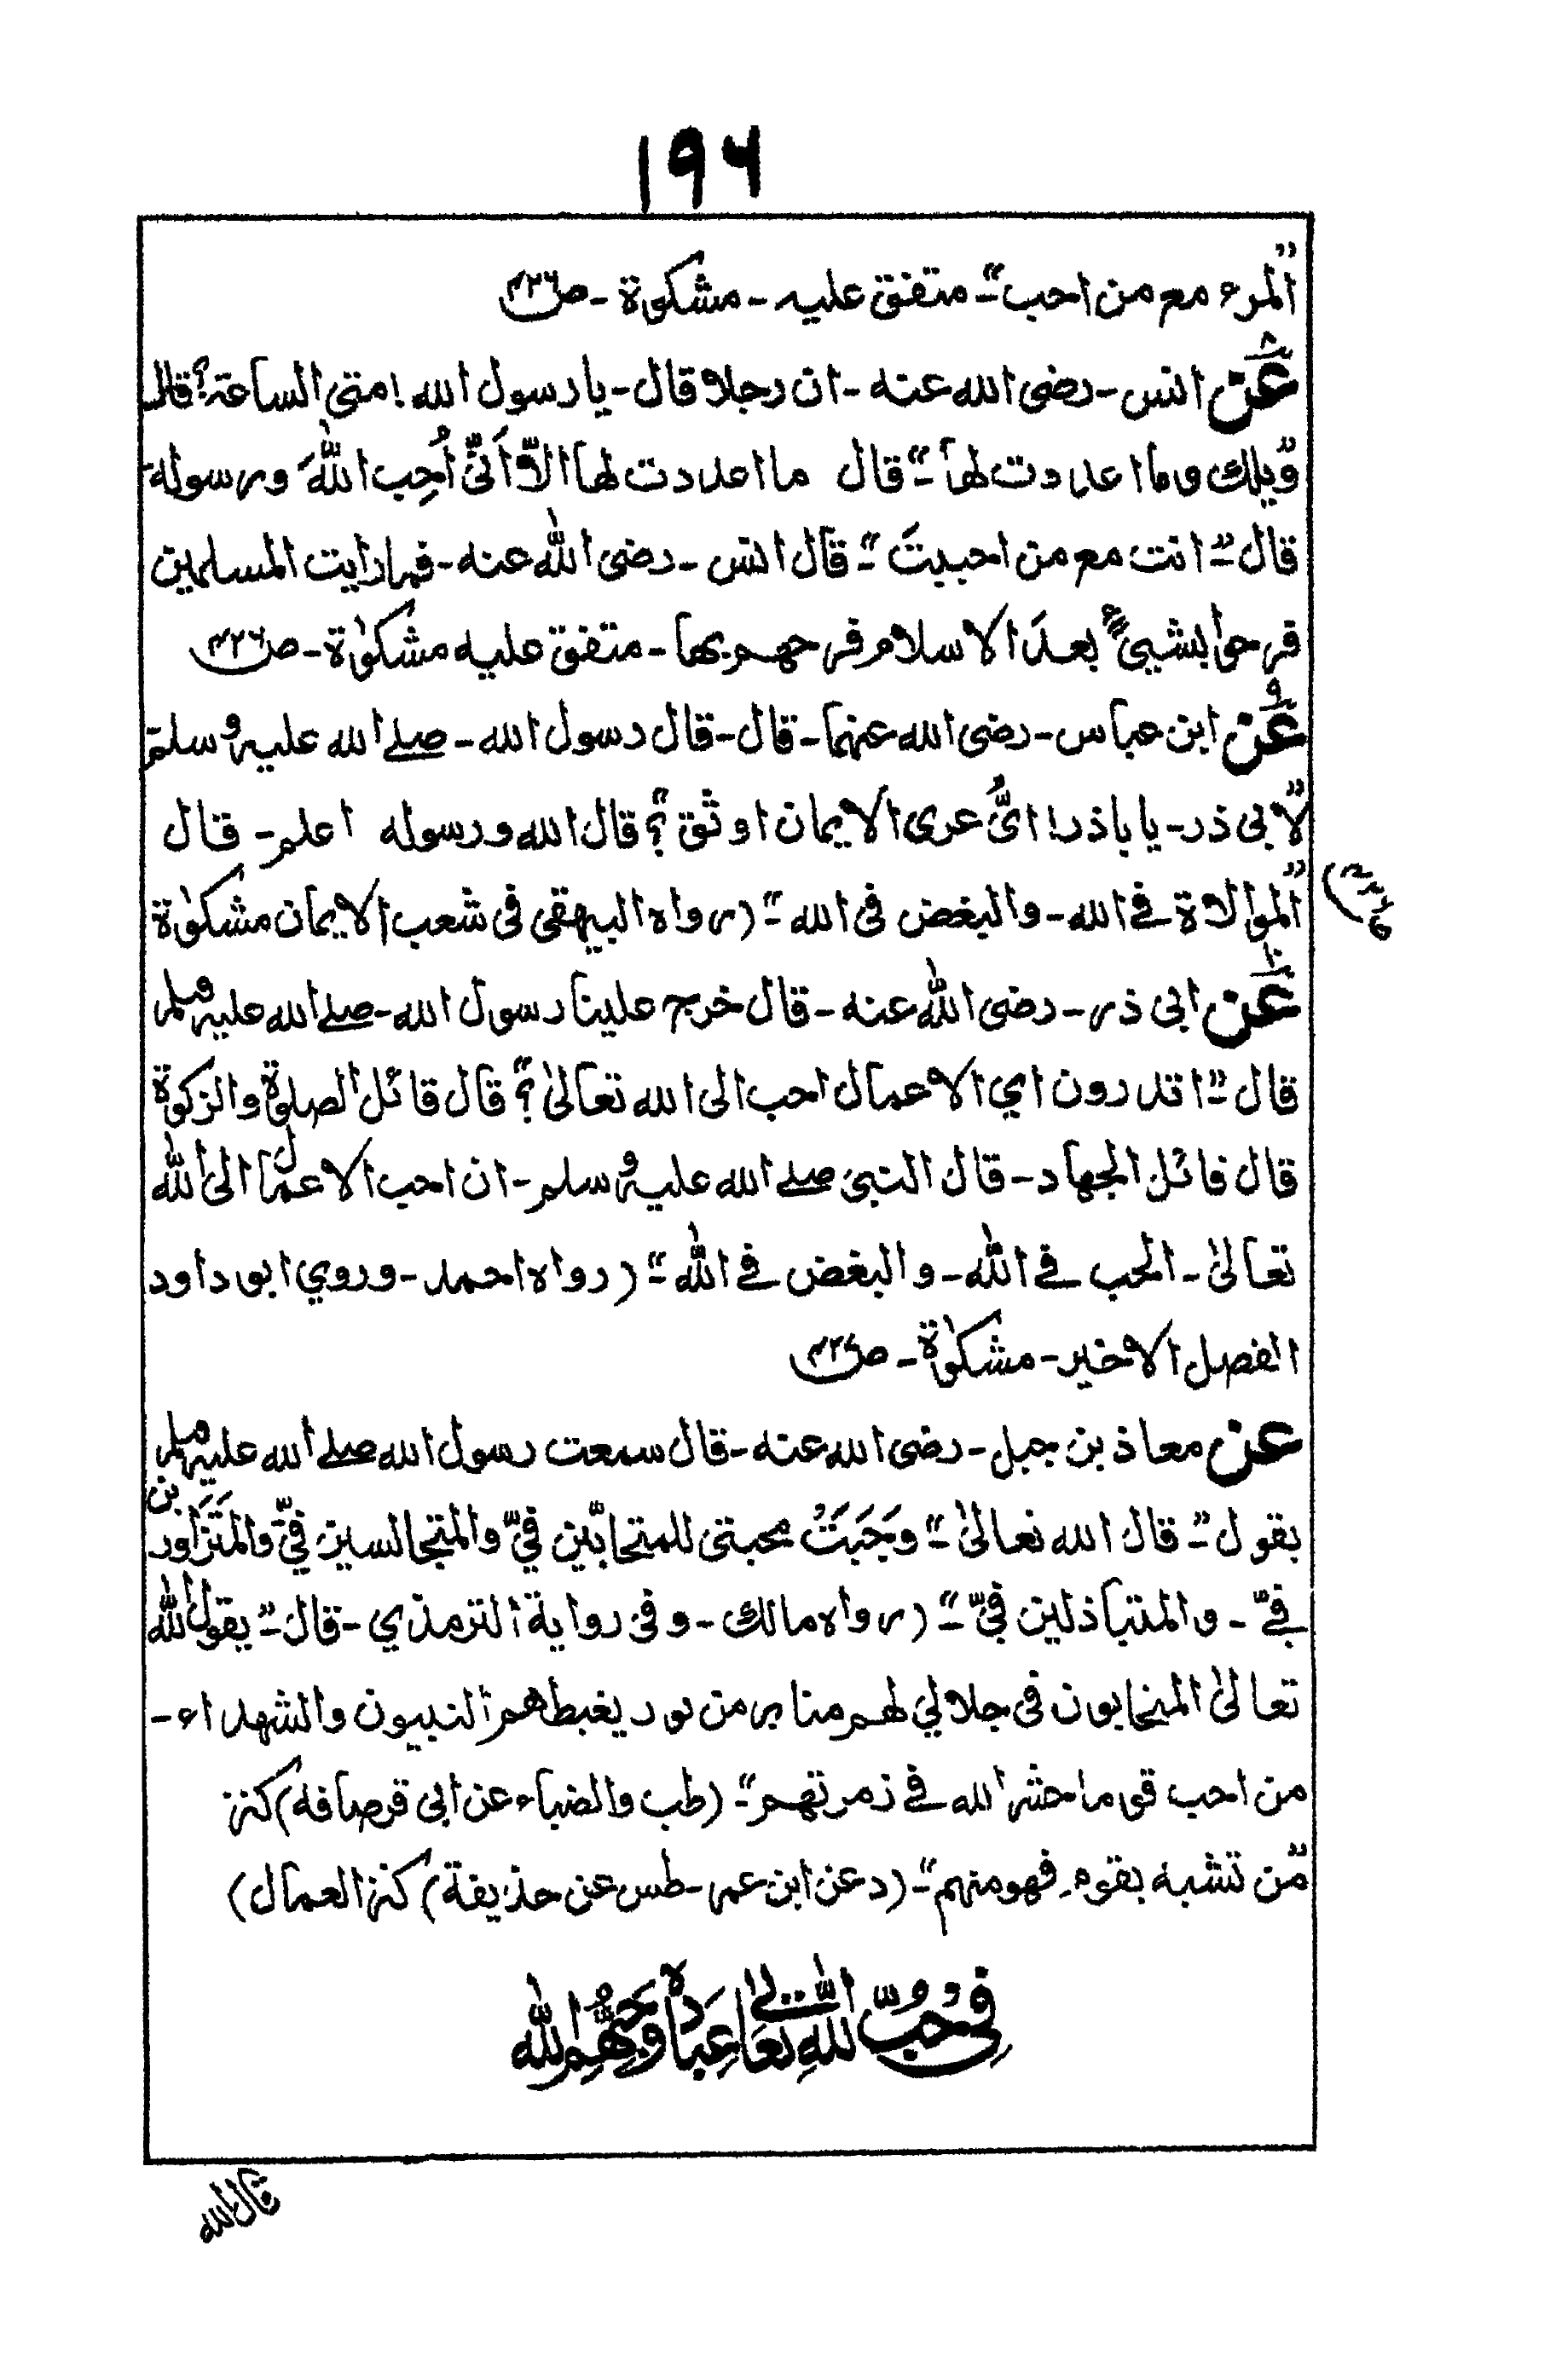 ۱۹۶
"المرء مع من احب"۔ متفق علیہ۔ مشکوۃ۔ ص۴۲۶
عن انس۔ رضی الله عنه۔ ان رجلا قال۔ یا رسول الله! متی الساعة؟ قال
"ویلك وما اعددت لها"۔ قال ما اعددت لها الّا اَنّی اُحِب اللهَ ورسوله
قال۔" انت مع من احببتَ"۔ قال انس۔ رضی الله عنه۔ فما رایت المسلمین
فرحوا بشیئ بعدَ الاسلام فرحهم بها۔ متفق علیه مشکوٰة۔ ص۴۲۶
۹
عن ابن عباس۔ رضی الله عنهما۔ قال۔ قال رسول الله۔ صلے الله علیہ وسلم
"لابی ذر۔ یا باذر! ایُّ عری الایمان اوثق"؟ قال الله ورسوله اعلم۔ قال
"الموالاة فے الله۔ والبغض فی الله"۔ (رواه البیهقی فی شعب الایمان مشکوٰة
۱۰
عن ابی ذر۔ رضی الله عنه۔ قال خرج علینا رسول الله۔ صلے الله علیه وسلم
قال۔" اتدرون ای الاعمال احب الی الله تعالیٰ"؟ قال قائل الصلوٰة والزکوة
قال قائل الجهاد۔ قال النبی صلے الله علیہ وسلم۔ ان احب الاعمال الی الله
تعالیٰ۔ الحب فے الله۔ والبغض فے الله"۔ (رواه احمد۔ وروی ابو داود
الفصل الاخیر۔ مشکوٰة۔ ص۴۲۷
عن معاذ بن جبل۔ رضی الله عنه۔ قال سمعت رسول الله صلے الله علیه وسلم
یقول۔" قال الله تعالیٰ"۔ وَجَبَتْ محبتی للمتحابّین فیّ والمتجالسین فیّ والمتَزَاورین
فیّ۔ والمتباذلین فیّ"۔ (رواه مالك۔ وفی روایة الترمذی۔ قال۔" یقول الله
تعالیٰ المتحابون فی جلالی لهم منابر من نور یغبطهم النبیون والشهداء۔
من احب قوما حشره الله فے زمرتهم"۔ (طب والضیاء عن ابی قرصافه) کنز
"من تشبه بقوم فهو منهم"۔ (د عن ابن عمر۔ طس عن حذیفة) کنز العمال)
فِیْ حُبِّ اللهِ تعالیٰ عِبَادَه وحُبِّهِمُ الله
قال الله